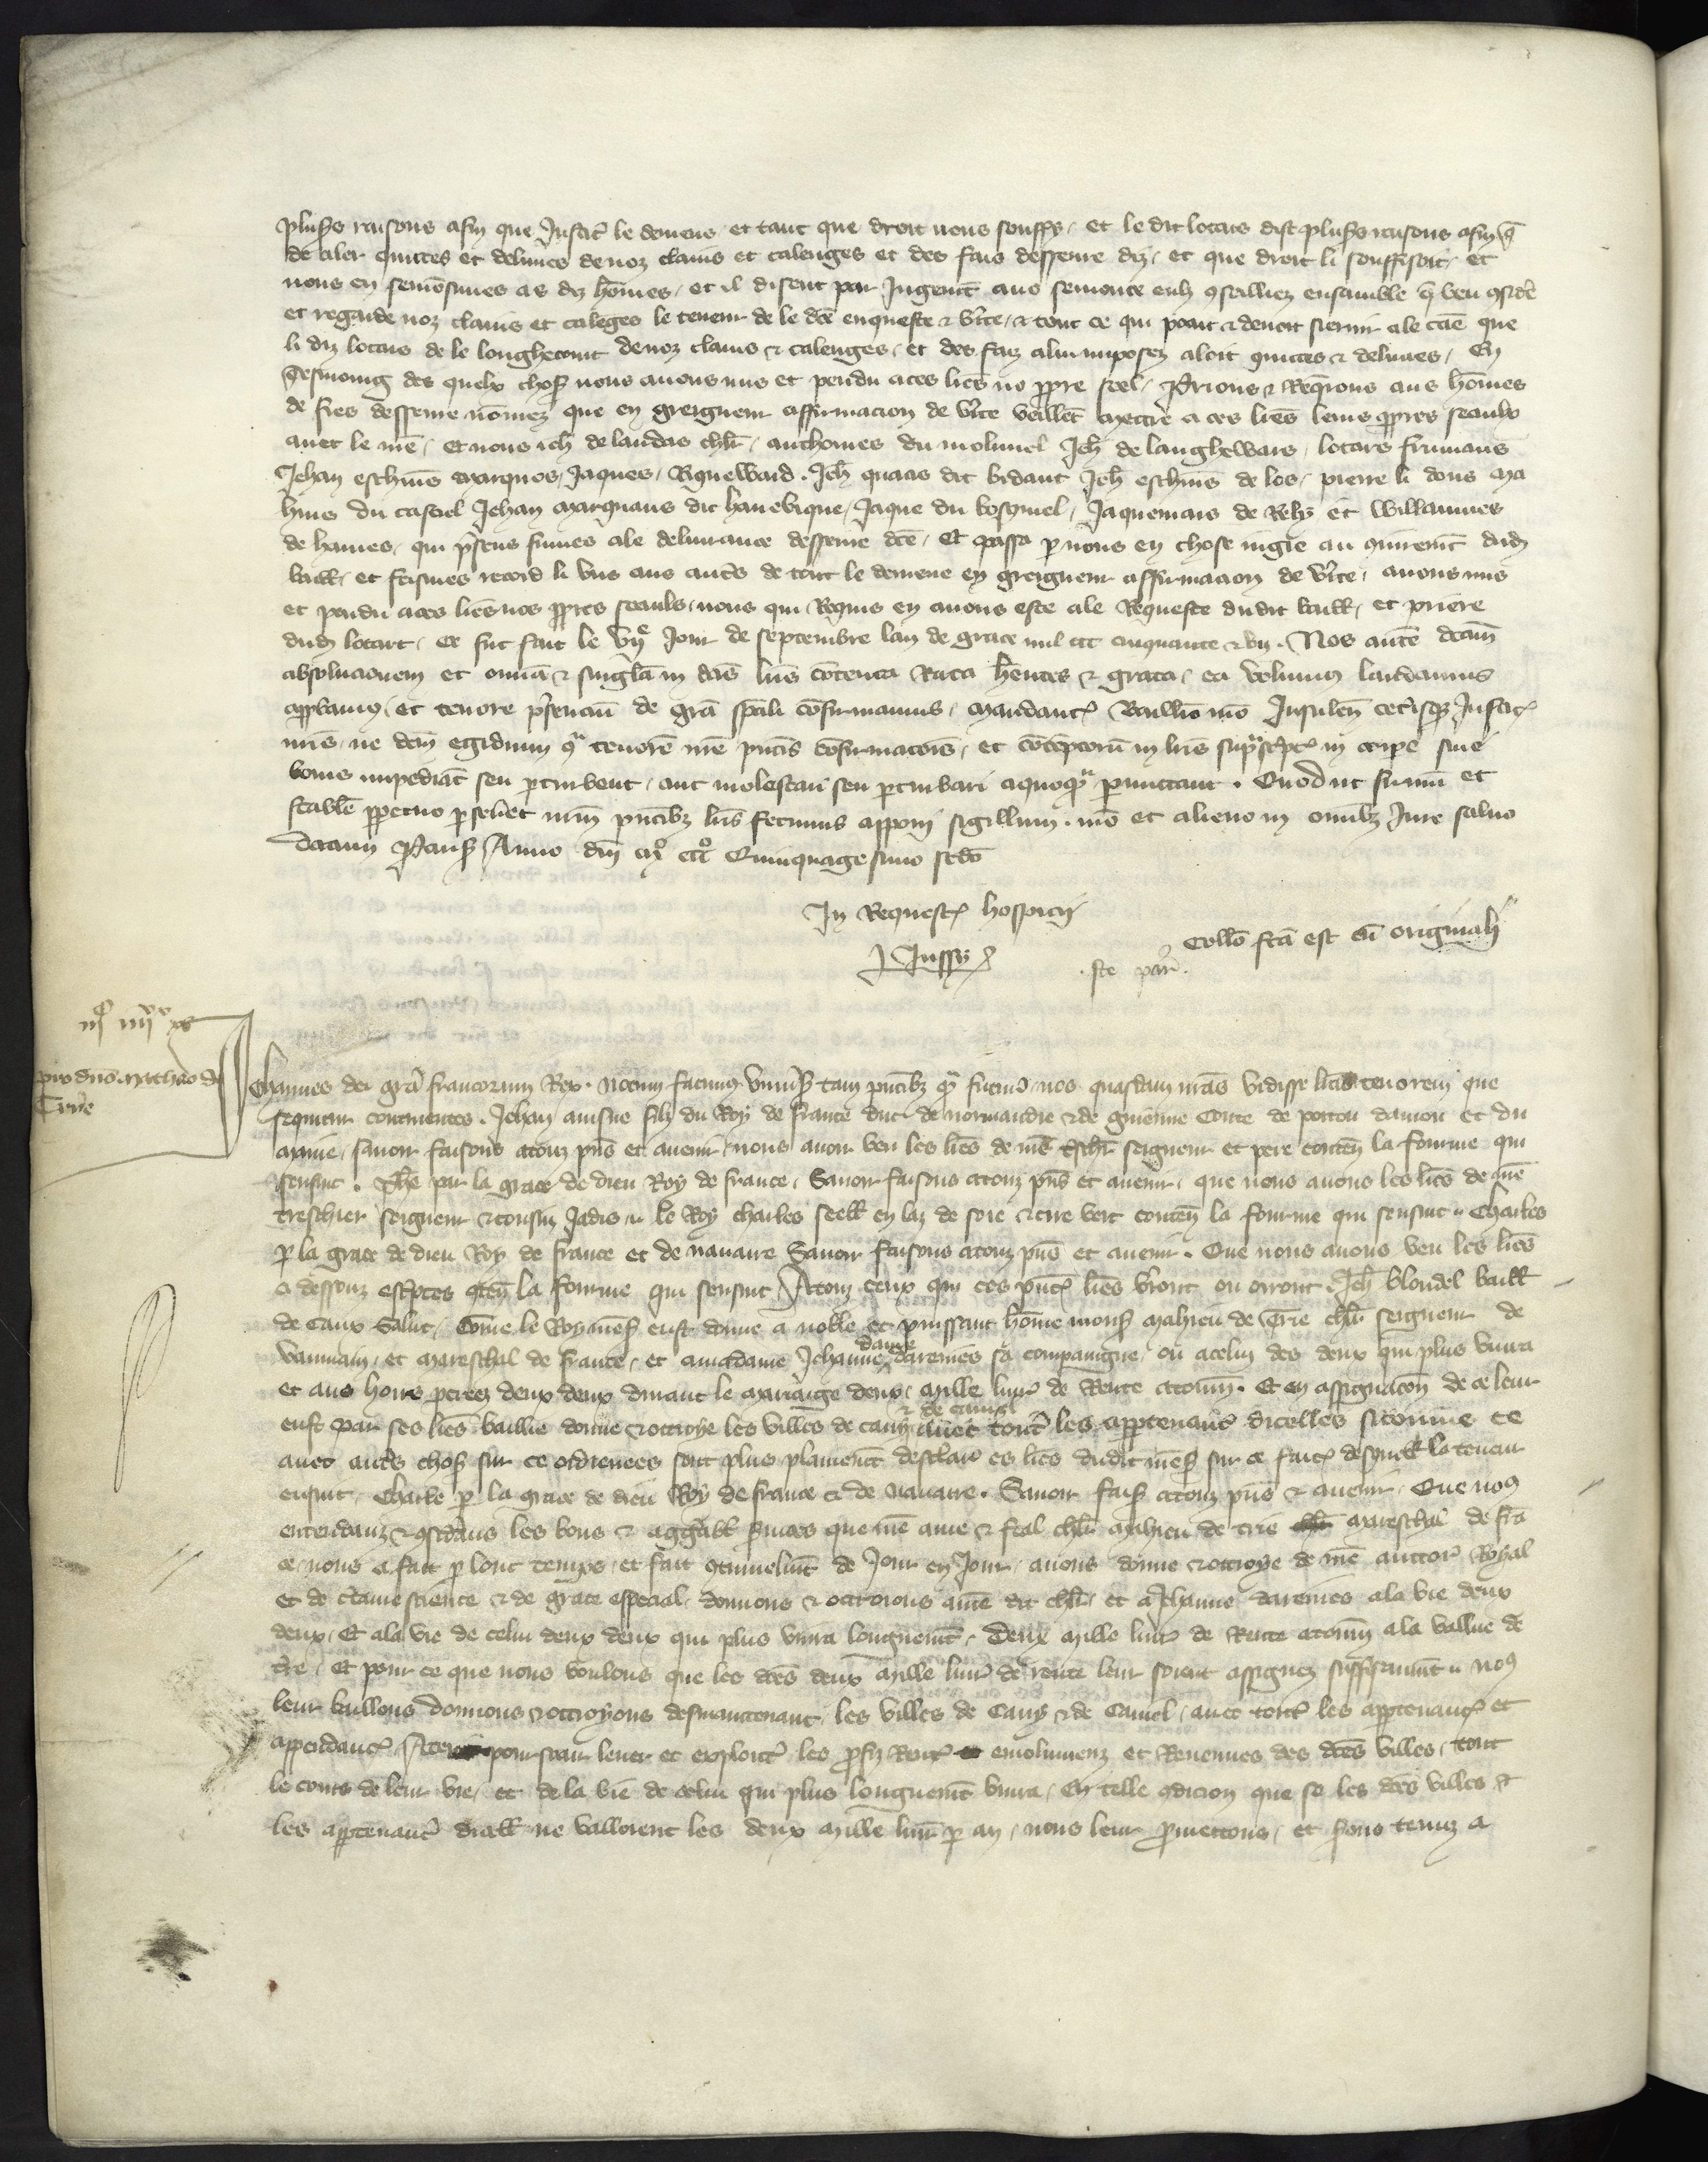 plus̉s raisons afin que Justicẽ le demene et tant que drort nous souffis / et le dit lotars dist plus̉s raisons afin q̃
de aler quittes et deliures de noz clains et calenges et des fais desseure diz / et que droit li souffisoit / et
nous en semōsimes as diz hōmes / et il disent par Jugem̄t a no semonce eulz ꝯseilliez ensamble q̃ veu ꝯsid̃e
et regarde noz clains et calēges le teneur de le dc̄e enqueste & v̉ite / & tout ce qui poait & deuoit seruir a le cāe que
li diz lotars de le longhecourt de noz clains & calenges / et des faiz a lui imposez aloit quittes & deliures / En
tesmoing des quelx chos̉ nous auons mis et pendu a ces lr̄es no ꝓpre seel / Prions & Req̄rons aus hōmes
de fies desseure nōmez que en greigneur affirmacion de v̉ite veillēt mettre a ces lr̄es leurs ꝓpres seaulx
auec le nr̄e / Et nous Jeh̄ de landas chlr̄ / anthoines du moluniel Jeh̄ de langhewars / lotars frumaus
Jehan escheuis marquos / Jaques / Riqueward . Jeh̄ quacis dit bidaut Jeh̄ escheuis de los / pierre li dous ma
hius du castiel Jehan marquans dit hanebique / Jaque du bosquiel / Jaquemars de Relȝ et Willaumes
de haines / qui p̃sens fumes a le deliurance desseure dc̄e / Et passa ꝑ nous en chose iugie au ꝯiurem̄t dud̄
baill̄ / et fesimes record li vns aus aut̃s de tout le demene en greigneur affirmacion de v̉ite / auons mis
et pendu a ces lr̄es nos ꝓpres seauls / nous qui Requis en auons este a le Requeste du dit baill̄ / et priere
dud̄ lotart / Ce fut fait le vije Jour de septembre lan de grace mil ccc cinquante & vn . Nos autē dc̄am
absolucionem et om̄ia & sing̃la in dc̄is lr̄is cōtenta Rata hēntes & grata / ea volumus laudamus
apꝓbamus / et tenore p̃sencium de grā sp̄ali cōfirmamus / mandantes Baill̄io nr̄o Jnsulen̄ cet̃isqȝ Justic̃
nr̄is / ne dc̄m egidium ꝯ̃ tenorē nr̄e p̄ntis cōfirmac̄ois / et cōtentorū in lr̄is sup̃sc̃ptis in corpe siue
bonis impediāt seu ꝑturbent / aut molestari seu ꝑturbari a quoquã ꝑmittant . Quod ut firmū et
stabile ꝑpetuo ꝑseũet nr̄m p̄ntibȝ lr̄is fecimus apponi sigillum . nr̄o et alieno in om̄ibȝ Jure saluo
Datum Paris̉ Anno dn̄i mͦ cccͦ Quinquagesimo scd̄o
In Requestis hospicij
J Jussy
Coll̄o fc̄a est cū originali
. ste par̄ .
iijc iiijxx x
pro dn̄o matheo de
Trye
Johannes dei grā francorum Rex . notum facimus vniũs̉ tam p̄ntibȝ qͣ futuris / nos quasdam nr̄as vidisse lr̄as tenorem que
sequitur continentes . Jehan ainsne filz du Roy de france duc de normandie & de guiēnne Conte de poitou daniou et du
maine / sauoir faisons a touz p̄ns et auenir / nous auoir veu les lr̄es de nr̄e t̃schr̄ seigneur et pere conten̄ la fourme qui
sensuit . Ph̄e par la grace de dieu Roy de france / Sauoir faisons a touz p̄ns et auenir / que nous auons les lr̄es de nr̄e
treschier seigneur & cousin Jadis .. le Roy charles seell̄ en laz de soie & cire vert conten̄ la fourme qui sensuit .. Charles
ꝑ la grace de dieu Roy de france et de nauarre Sauoir faisons a touz p̄ns et auenir . Que nous auons veu les lr̄es
ci dessouz esc̃ptes ꝯten̄ la fourme qui sensuit / A touz ceux qui ces p̄ntes lr̄es v̉ront ou orront . Jeh̄ blondel baill̄
de Caux Salut / Cōme le Roy nr̄es̉ eust donne a noble et puissant hōme mons̉ mahieu de Trie chlr̄ seigneur de
vaumain / et mareschal de france / et a madame Jehanne dame darenies sa compaigne / ou a celui des deux qui plus viura
et aus hoirs ꝓcreez deux deux durant le mariaige deux / mille liur̃ de Rente a tourn̄ . Et en assignac̄on de ce leur
eust par ses lr̄es baillie donne & octroye les villes de cany & de caniel auec tout̃ les appꝑtenanc̃ dicelles si cōme ce
auec aut̃s chos̉ sur ce ordrenees sont plus plainem̄t desclair̃ es lr̄es du dit nr̄es̉ sur ce faites desquell̄ la teneur
ensuit / Charles ꝑ la grace de dieu Roy de france & de nauarre . Sauoir fais̉ a touz p̄ns & auenir / Que noꝯ
entendanz & ꝯsid̃ans les bons & aggreabl̄ s̉uices que nr̄e ame & feal chlr̄ mahieu de trie mareschal de frā
ce nous a fait ꝑ lonc temps / et fait ꝯtinuelm̄t de Jour en Jour / auons donne & octroye de nr̄e auctor̃ Royal
et de c̃taine science & de grace especial / donnons & octroions a nr̄e dit chlr̄ / et a Jehanne darenies a la vie deux
deux / Et a la vie de celui deux deux qui plus viura longuem̄t / Deux mille liur̃ de Rente a tourn̄ a la vallue de
t̃re / Et pour ce que nous voulons que les dc̄es deux mille liur̃ de rente leur soient assignez suffisamm̄t .. noꝯ
leur baillons donnons & octroyons desmaintenant / les villes de Cany & de Caniel / auec tout̃ les appꝑtenanc̃ et
appendanc̃ / A tenir pour suir leuer et exploit̃ les ꝓfiz rent̃ emolumenz et Reuenues des dc̄es villes / tout
le cours de leur vie / et de la vie de celui qui plus longuem̄t viura / En telle ꝯdicion que se les dc̄es villes &
les appꝑtenanc̃ dicell̄ ne valloient les deux mille liur̃ ꝑ an / nous leur ꝓmettons / et s̉ons tenuz a